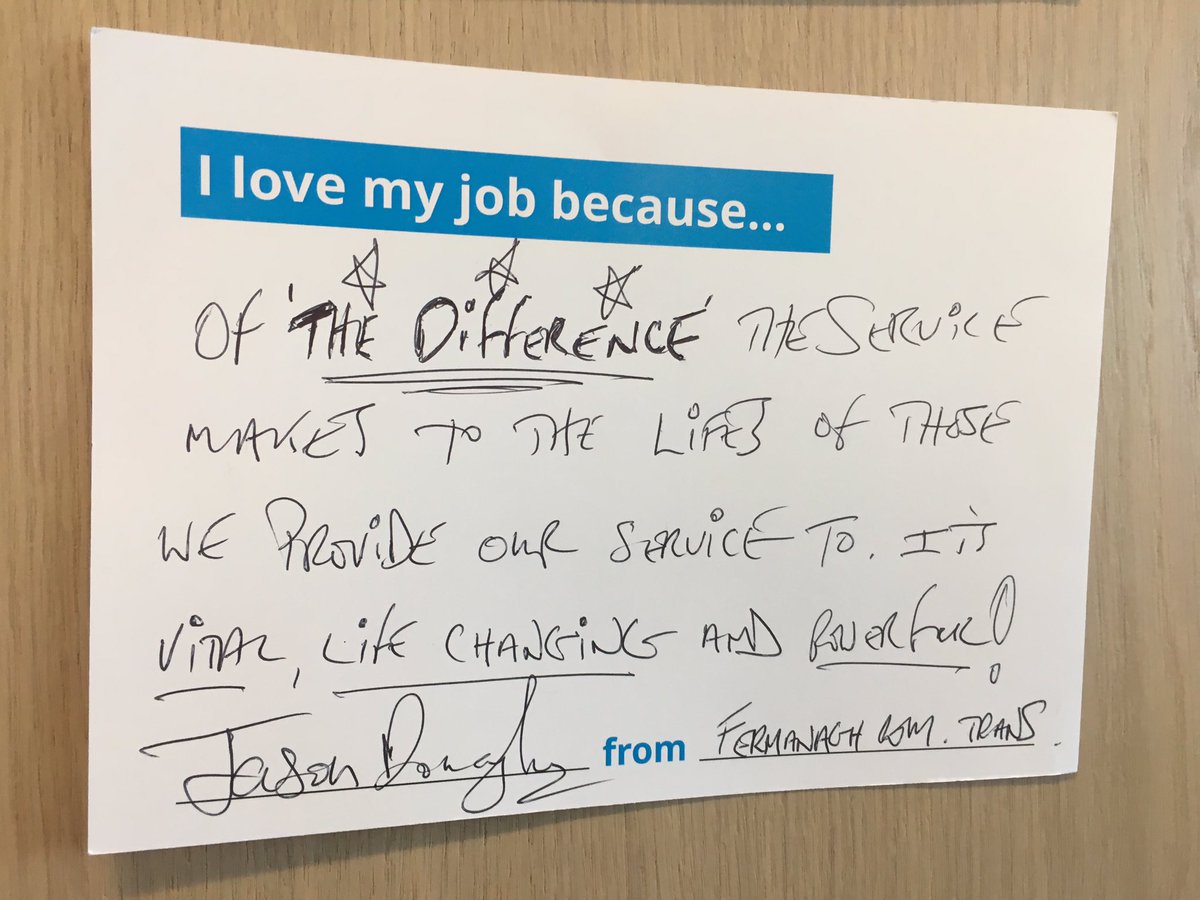 I love my job because...
OF 'THE DIFFERENCE' THE SERVICE
MAKES TO THE LIFES OF THOSE
WE PROVIDE OUR SERVICE TO. IT IS
VITAL, LIFE CHANGING AND POWERFUL!
Jason Donaghy from FERMANAGH COM. TRANS.